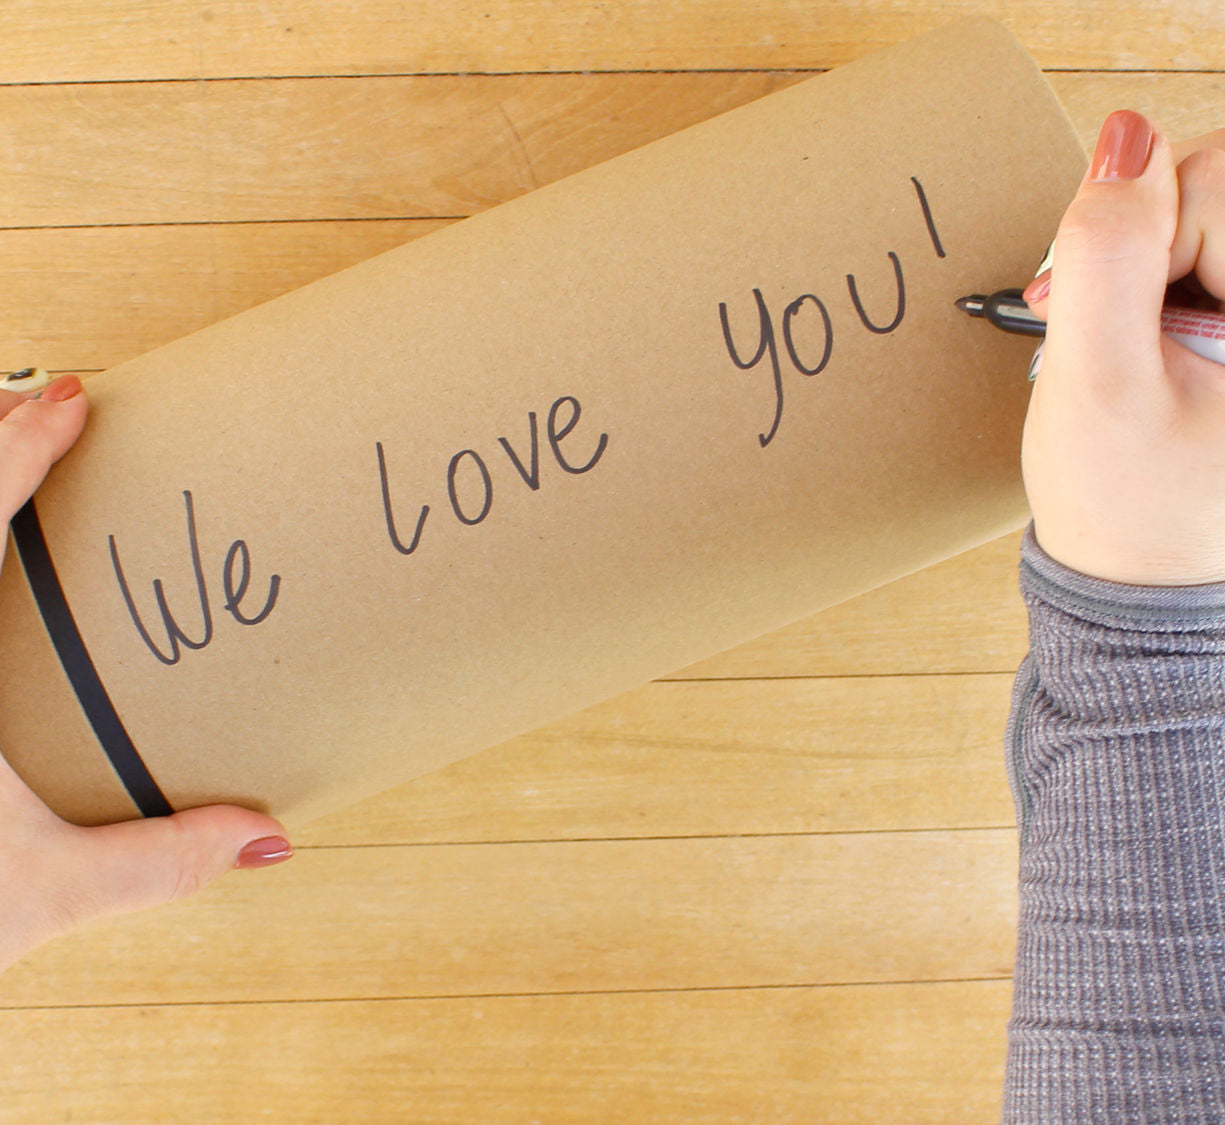 We love you!